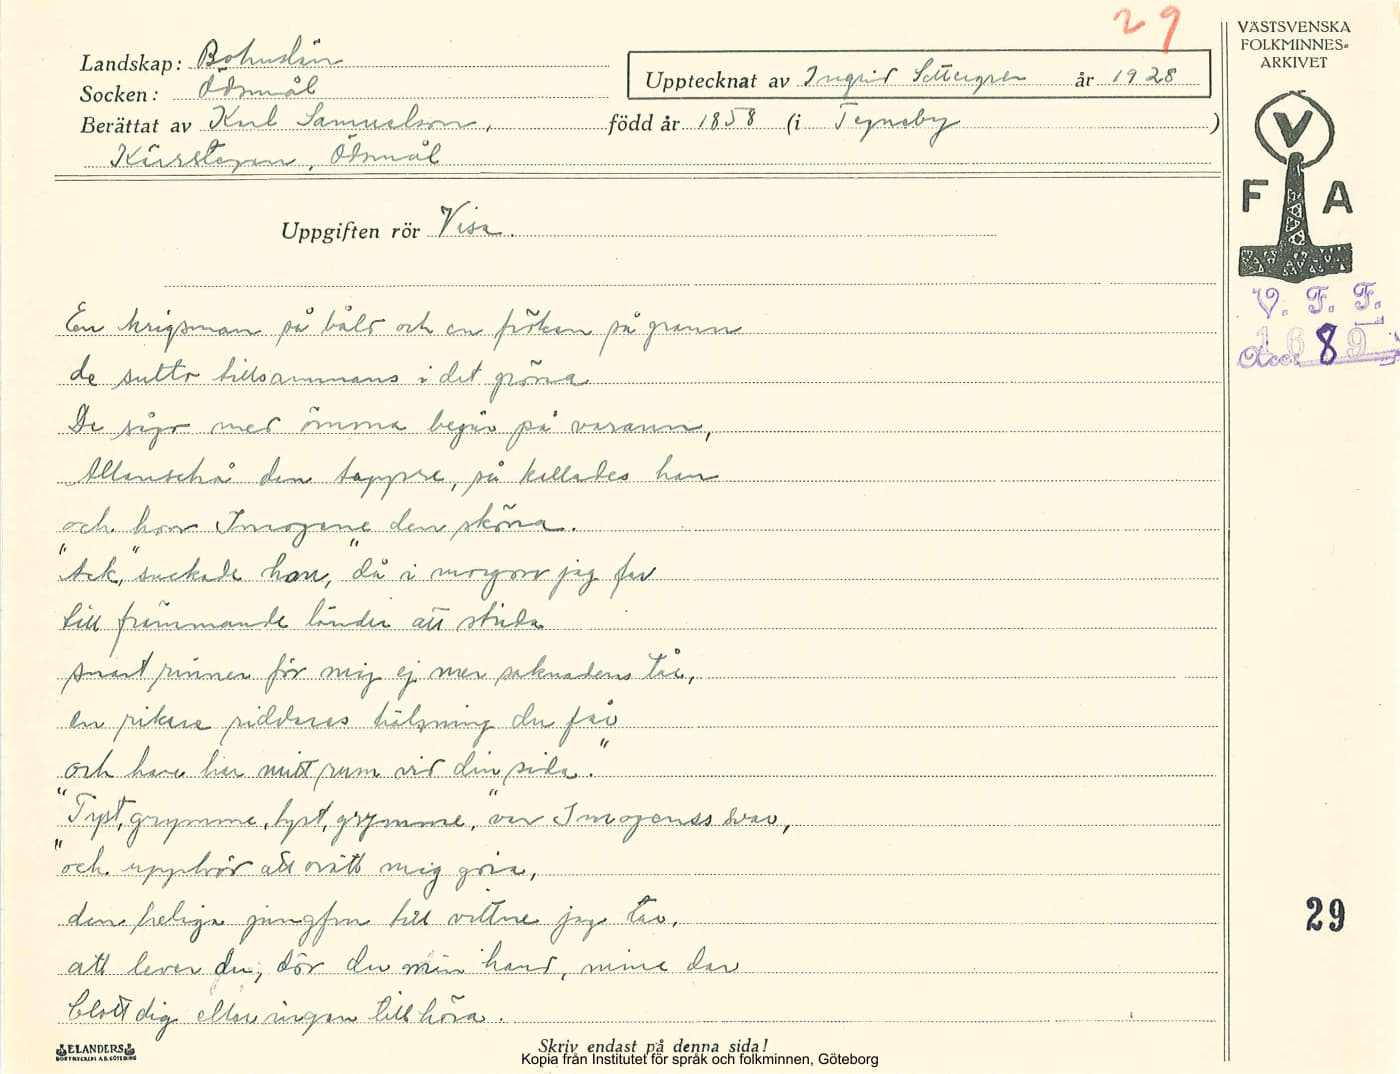 29
VÄSTSVENSKA
FOLKMINNES=
ARKIVET
Landskap: Bohuslän
Socken: Ödsmål
Upptecknat av Ingrid Settergren år 1928
Berättat av Karl Samuelson, född år 1858 (i Tegneby)
Kärrstegen, Ödsmål
V
F A
V. F. F.
Acc. 1689
Uppgiften rör Visa.
En krigsman så båld och en fröken så grann
de sutto tillsammans i det gröna
De sågo med ömma begär på varann,
Allanschå den tappre, så kallades han
och hon Imogene den sköna.
"Ack," suckade han, "då i morgon jag far
till främmande länder att strida
snart rinner för mig ej mer saknadens tår,
en rikare riddares hälsning du får
och han har mitt rum vid din sida."
"Tyst, grymme, tyst, grymme," var Imogenes svar,
"och upphör att orätt mig göra,
den heliga jungfrun till vittne jag tar,
att lever du, dör du min hand, mina dar
blott dig eller ingen tillhöra.
29
ELANDERS
BOKTRYCKERI A.B. GÖTEBORG
Skriv endast på denna sida!
Kopia från Institutet för språk och folkminnen, Göteborg